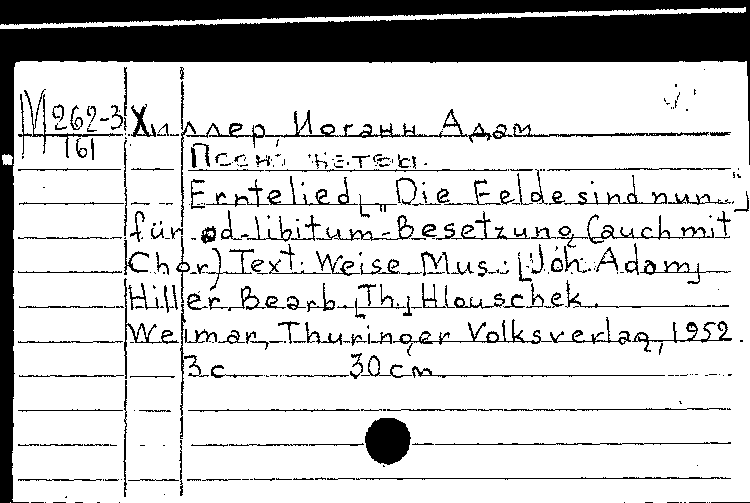 М 262-3
161
Хиллер, Иоганн Адам
Песнь жатвы.
Erntelied [„Die Felde sind nun..."]
für ad-libitum-Besetzung (auch mit
Chor) Text: Weise Mus.: [Joh. Adam]
Hiller. Bearb. [Th.] Hlouschek.
Weimar, Thüringer Volksverlag, 1952.
3 с. 30 см